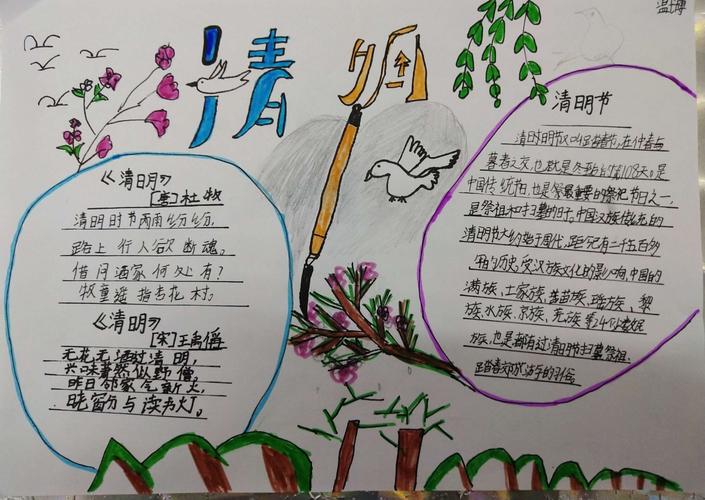 清明
《清明》
杜牧
清明时节雨纷纷，
路上行人欲断魂。
借问酒家何处有？
牧童遥指杏花村。
《清明》
[宋]王禹偁
无花无酒过清明，
兴味萧然似野僧
昨日邻家乞新火，
晓窗分与读书灯。
清明节
清明节又叫踏青节，在仲春与
暮春之交，也就是冬至后的108天。是
中国传统节日，也是最重要的祭祀节日之一，
是祭祖和扫墓的日子。中国汉族传统的
清明节大约始于周代，距今已有二千五百多
年的历史，受汉族文化的影响，中国的
满族、土家族、苗族、瑶族、黎
族、水族、京族、羌族等24个少数民
族，也是都有过清明节扫墓祭祖、
踏青郊游等的习俗。